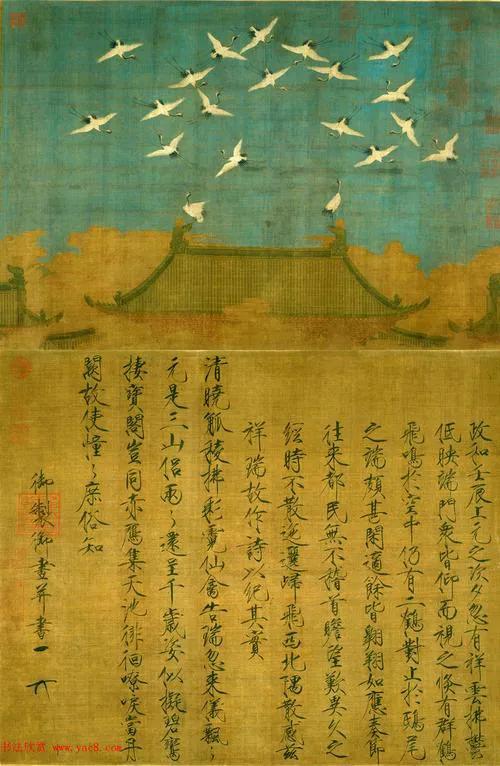 政和壬辰上元之次夕忽有祥雲拂鬱
低映端門眾皆仰而視之倏有群鶴
飛鳴於空中仍有二鶴對止於鴟尾
之端頗甚閑適餘皆翱翔如應奏節
往來都民無不稽首瞻望歎異久之
經時不散迤邐歸飛西北隅散感茲
祥瑞故作詩以紀其實
清曉觚稜拂彩霓仙禽告瑞忽來儀飄〻
元是三山侶兩〻還呈千歲姿似擬碧鸞
棲寶閣豈同赤雁集天池徘徊嘹唳當丹
闕故使憧〻庶俗知
御製御畫并書
书法欣赏 www.yac8.com